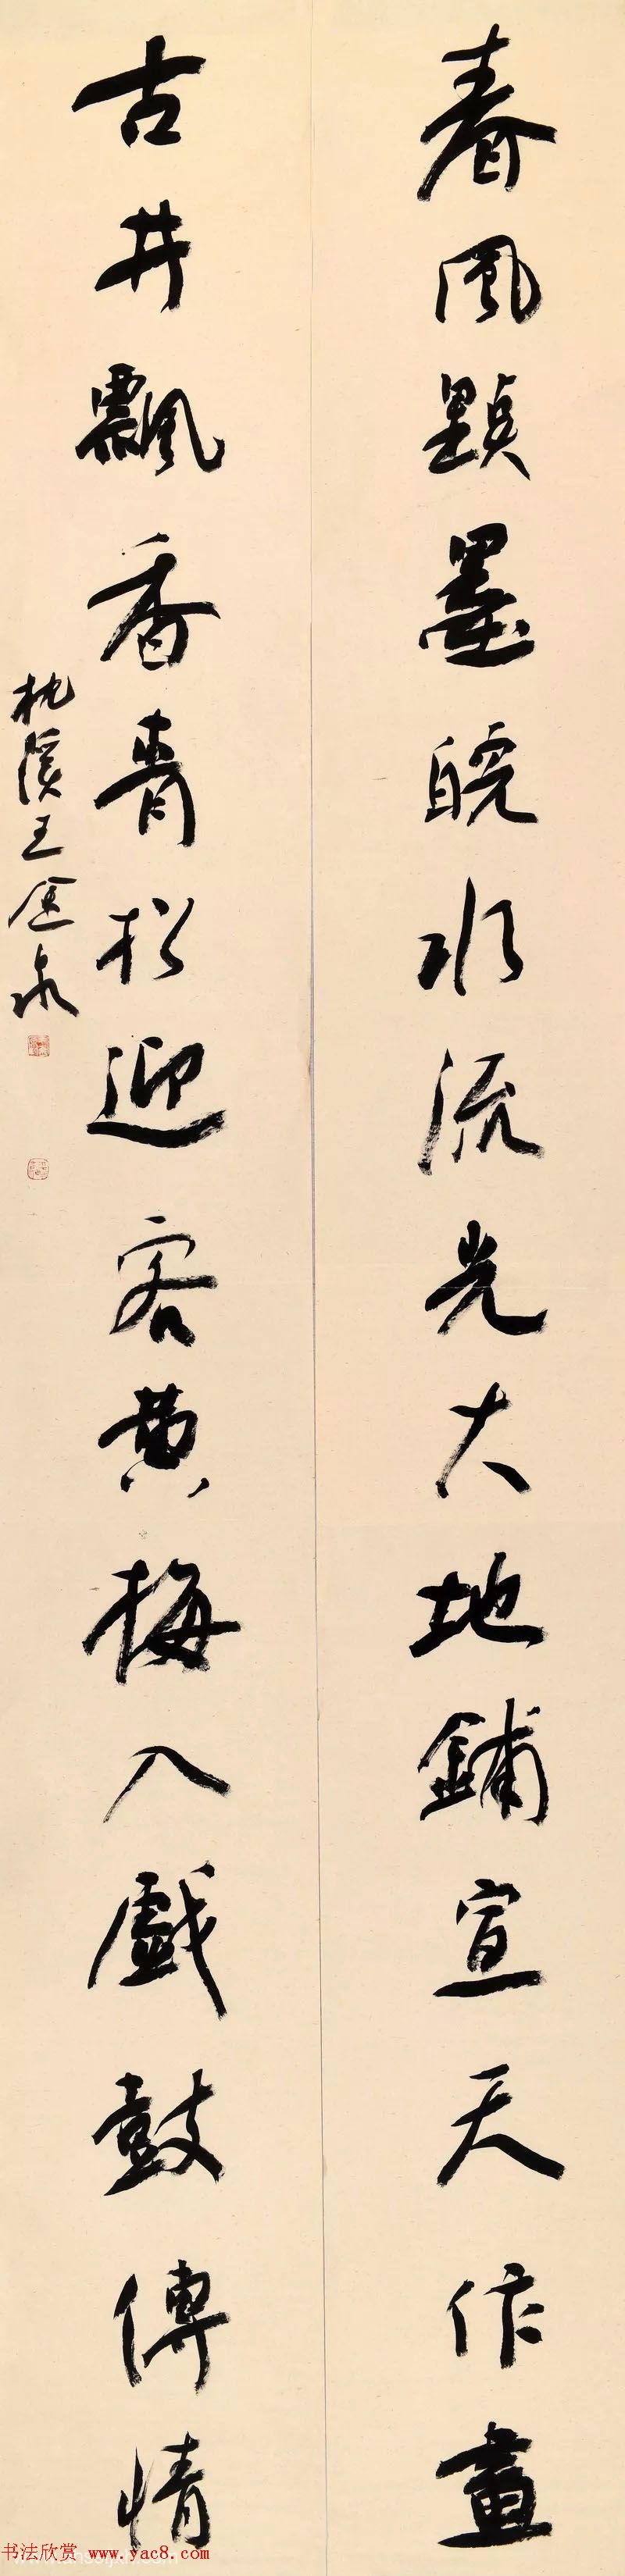 春風點墨皖水流光大地鋪宣天作畫
古井飄香青松迎客黃梅入戲鼓傳情
枕溪王金泉
书法欣赏 www.yac8.com